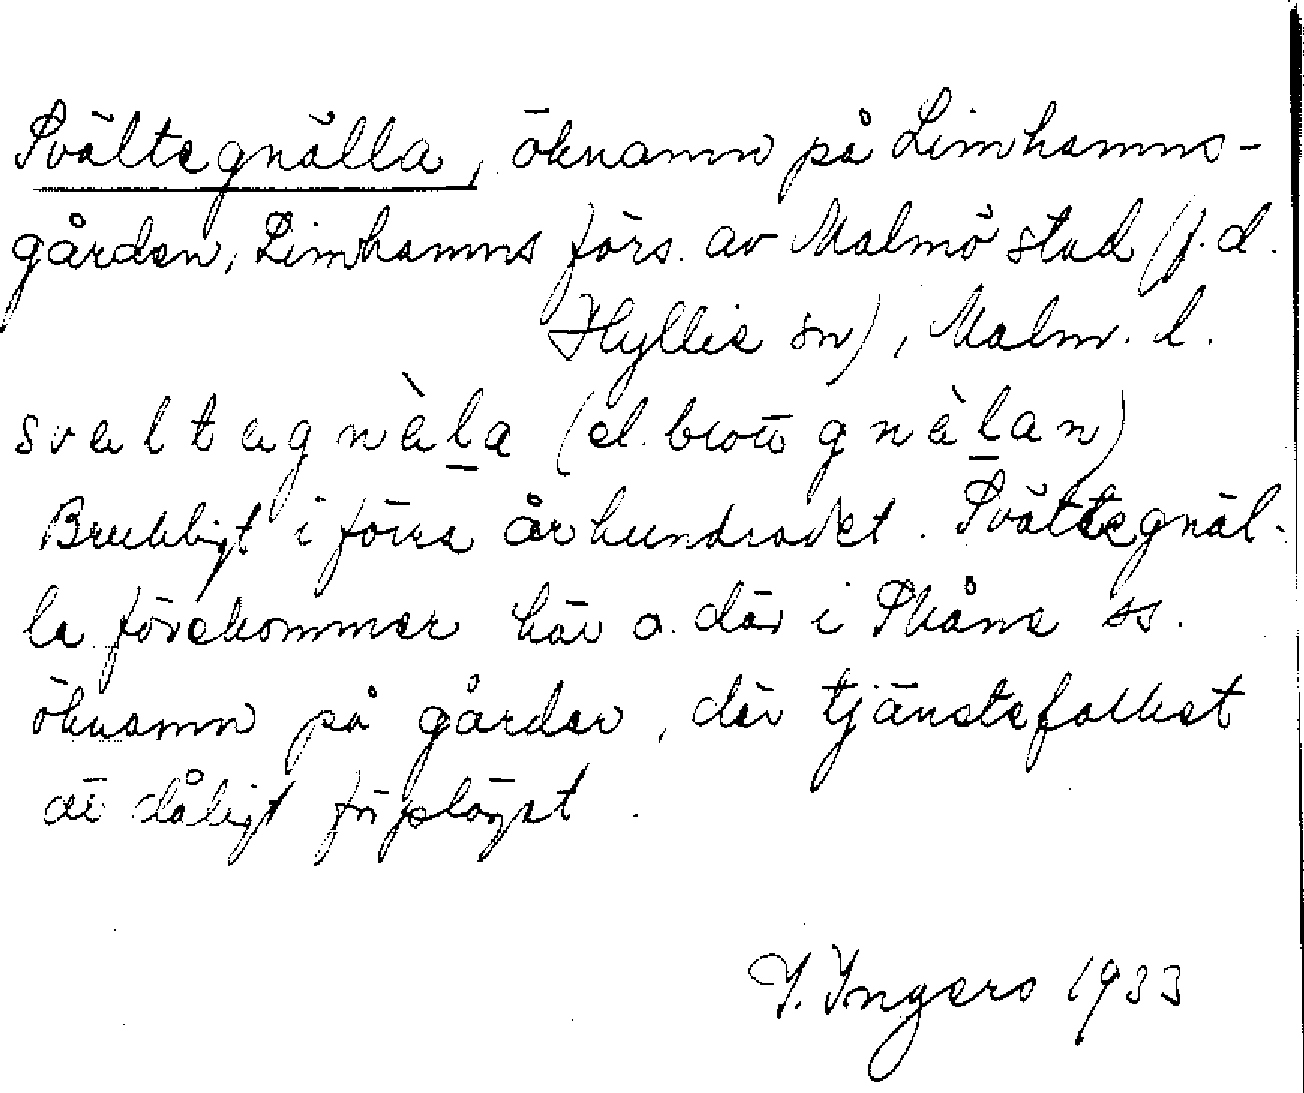 Svältegnälla, öknamn på Limhamns-
gården, Limhamns förs. av Malmö stad (f.d.
Hyllie sn), Malm. l.
sveltegnäla (el. blott gnälan)
Brukligt i förra århundradet. Svältegnäl-
la förekommer här o. där i Skåne ss.
öknamn på gårdar, där tjänstefolket
är dåligt förplägat.
I. Ingers 1933